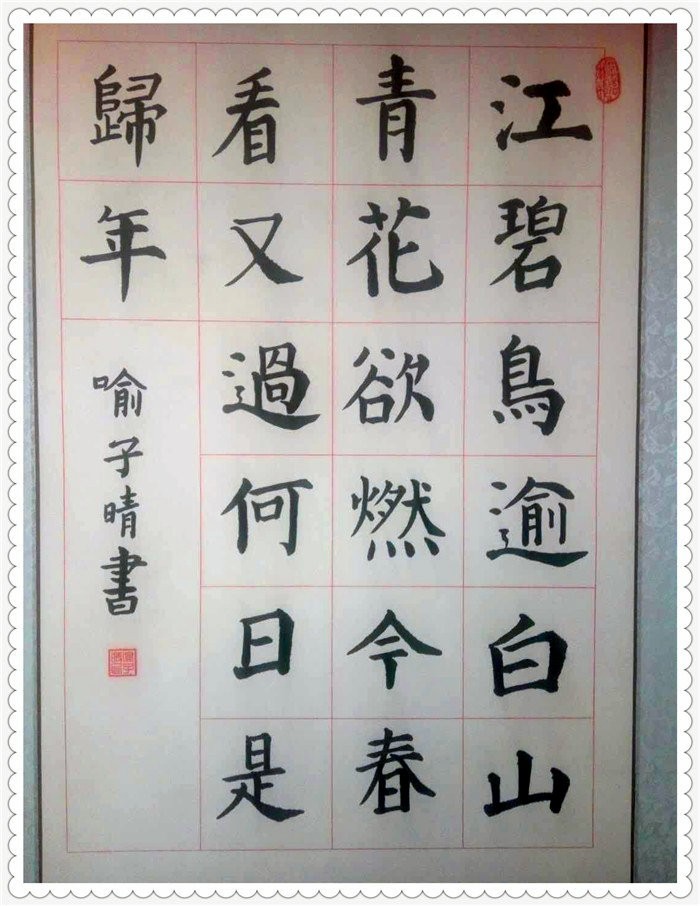 江碧鳥逾白山
青花欲燃今春
看又過何日是
歸年
喻子晴書